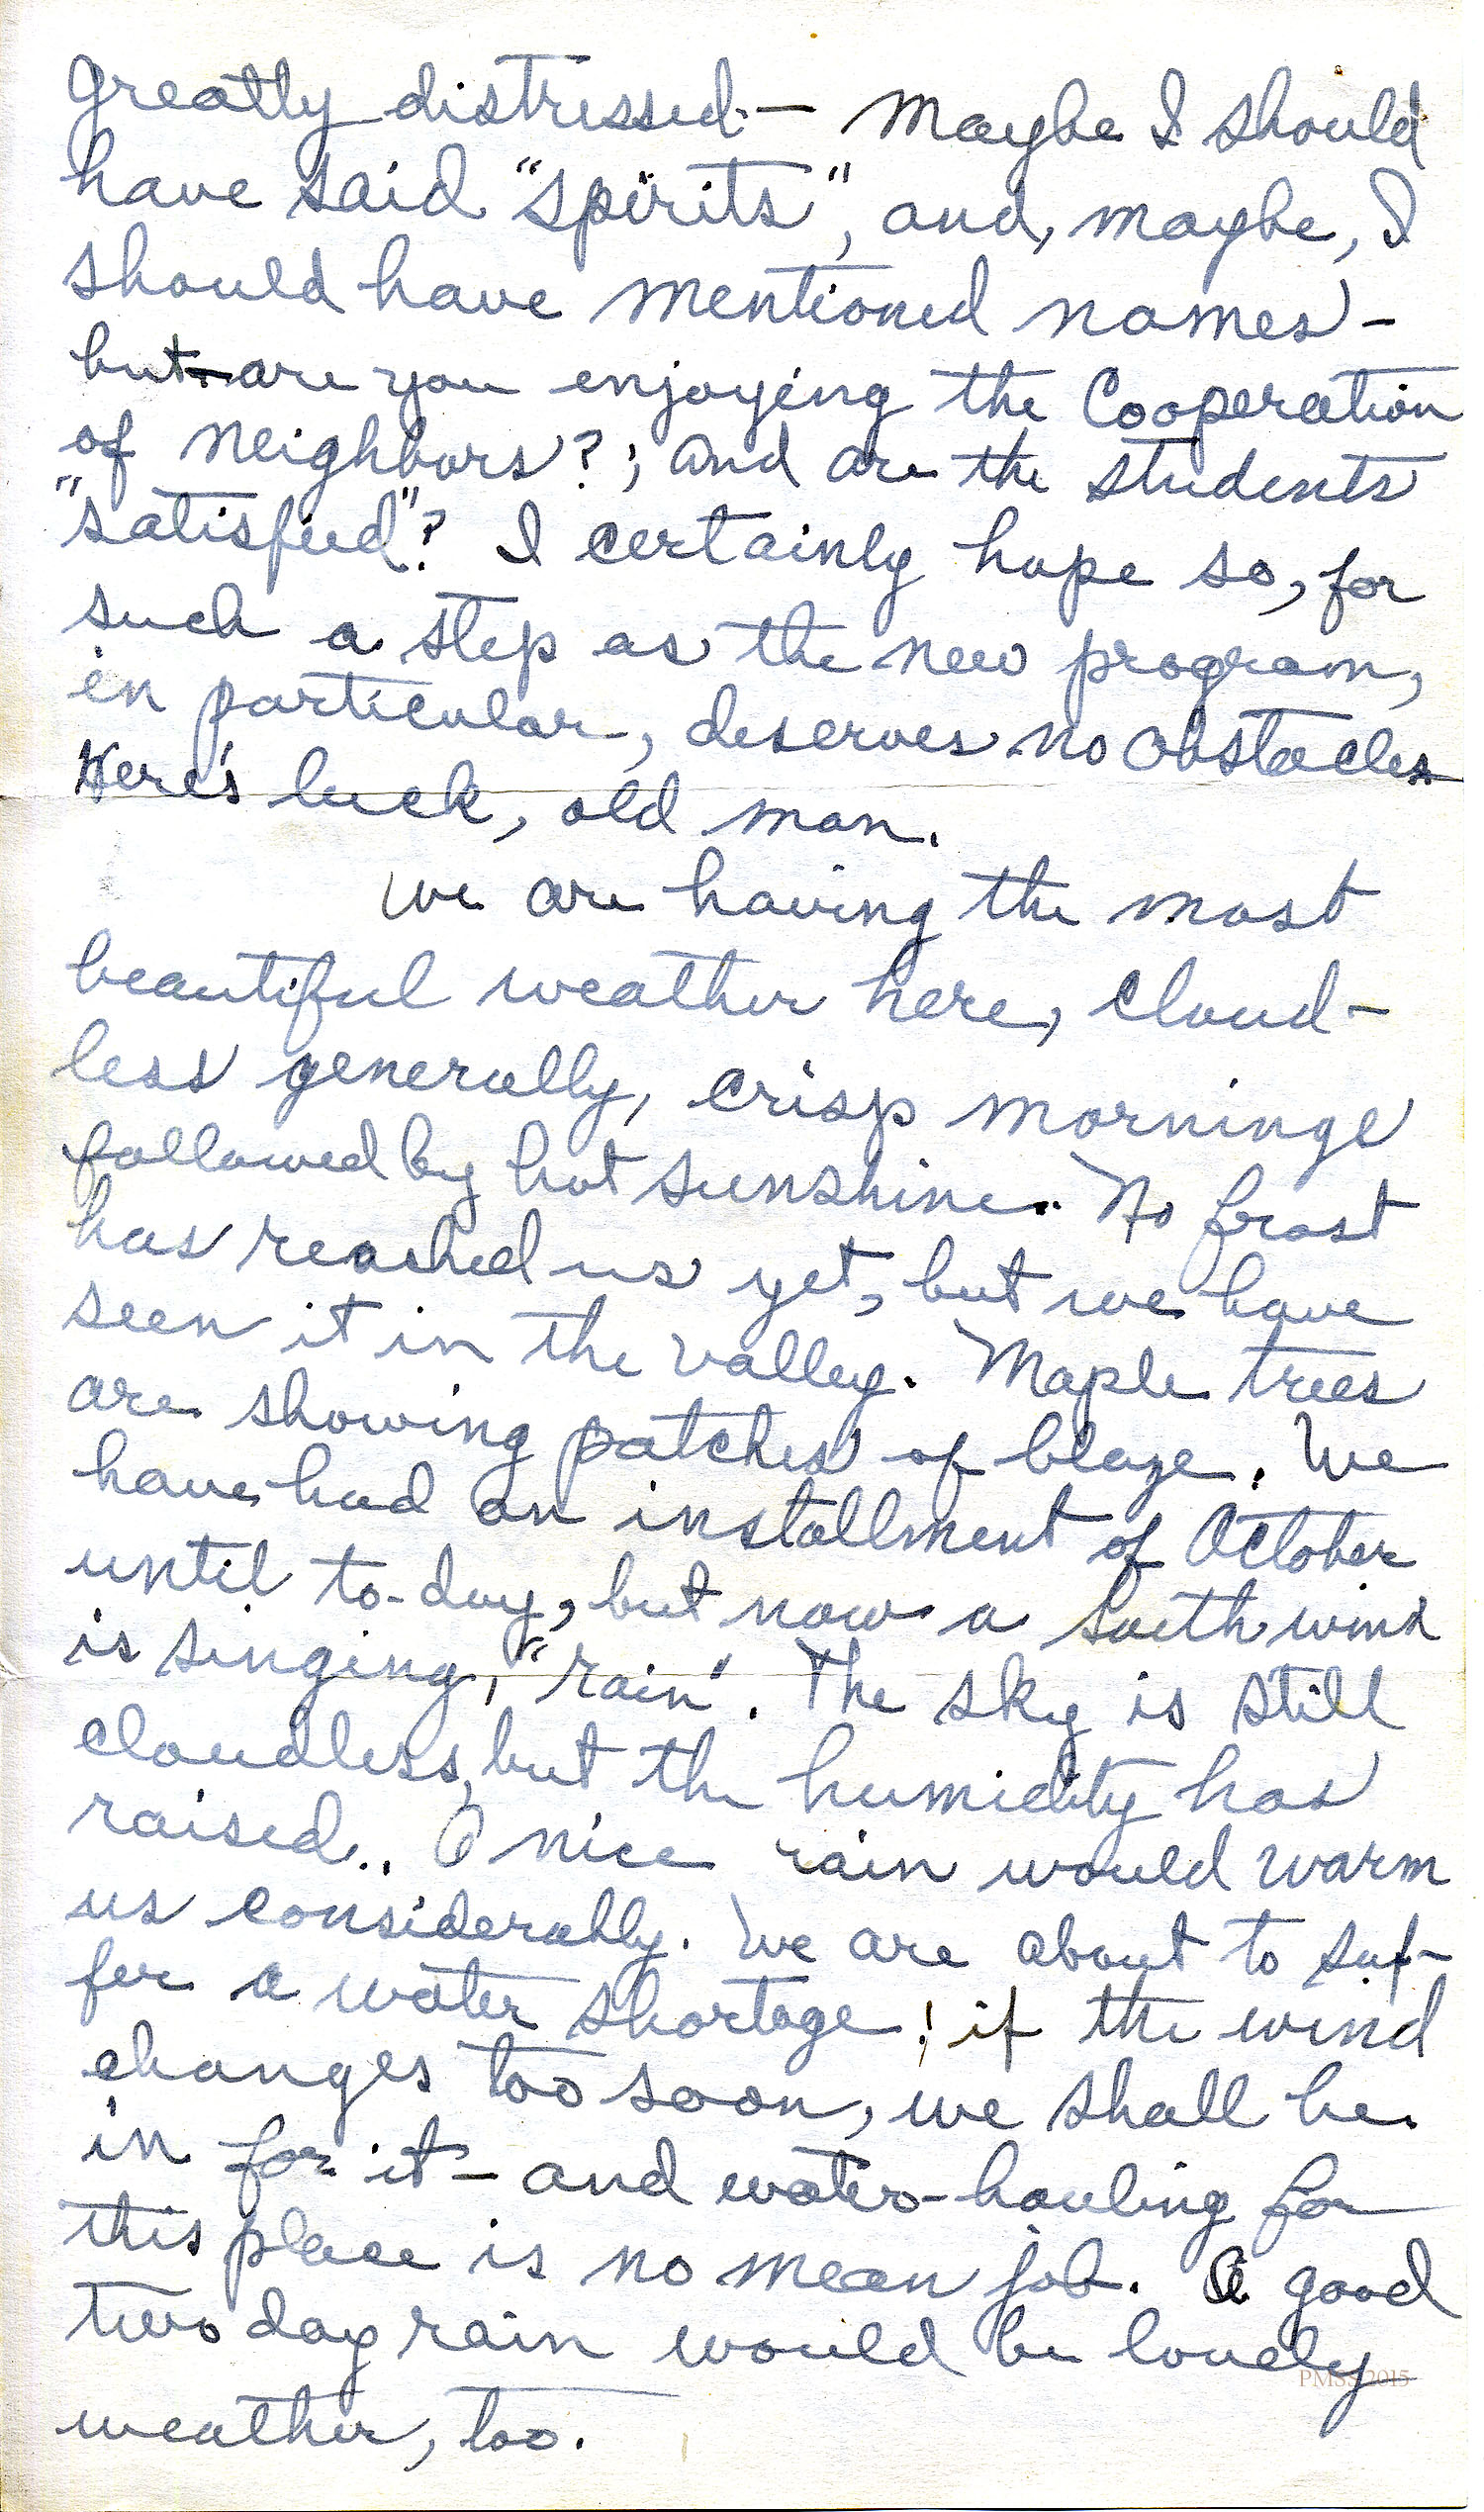 greatly distressed. — Maybe I should
have said "spirits", and, maybe, I
should have mentioned names -
but are you enjoying the Cooperation
of neighbors?; and are the students
"satisfied"? I certainly hope so, for
such a step as the new program,
in particular, deserves no obstacles
Here's luck, old man.
We are having the most
beautiful weather here, cloud-
less generally, crisp mornings
followed by hot sunshine. No frost
has reached us yet, but we have
seen it in the valley. Maple trees
are showing patches of blaze. We
have had an installment of October
until to-day, but now a south wind
is singing, "rain". The sky is still
cloudless, but the humidity has
raised.. A nice rain would warm
us considerably. We are about to suf-
fer a water shortage; if the wind
changes too soon, we shall be
in for it - and water-hauling for
this place is no mean job. A good
two day rain would be lovely
PMSS 2015
weather, too.